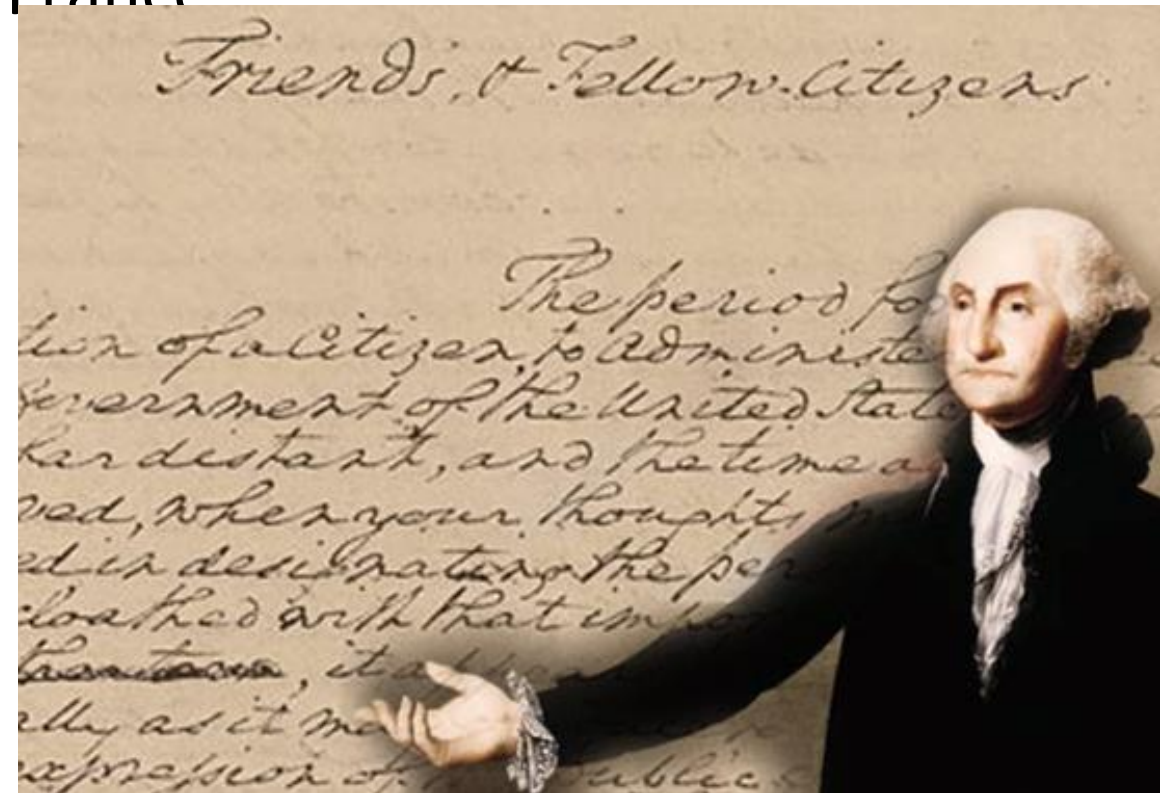 Friends, & Fellow-Citizens
The period fo
tion of a Citizen, to administe
Government of the United State
far distant, and the time a
ved, when your thoughts m
ed in designating the per
cloathed with that impor
, it appea
ally as it ma
expression of public